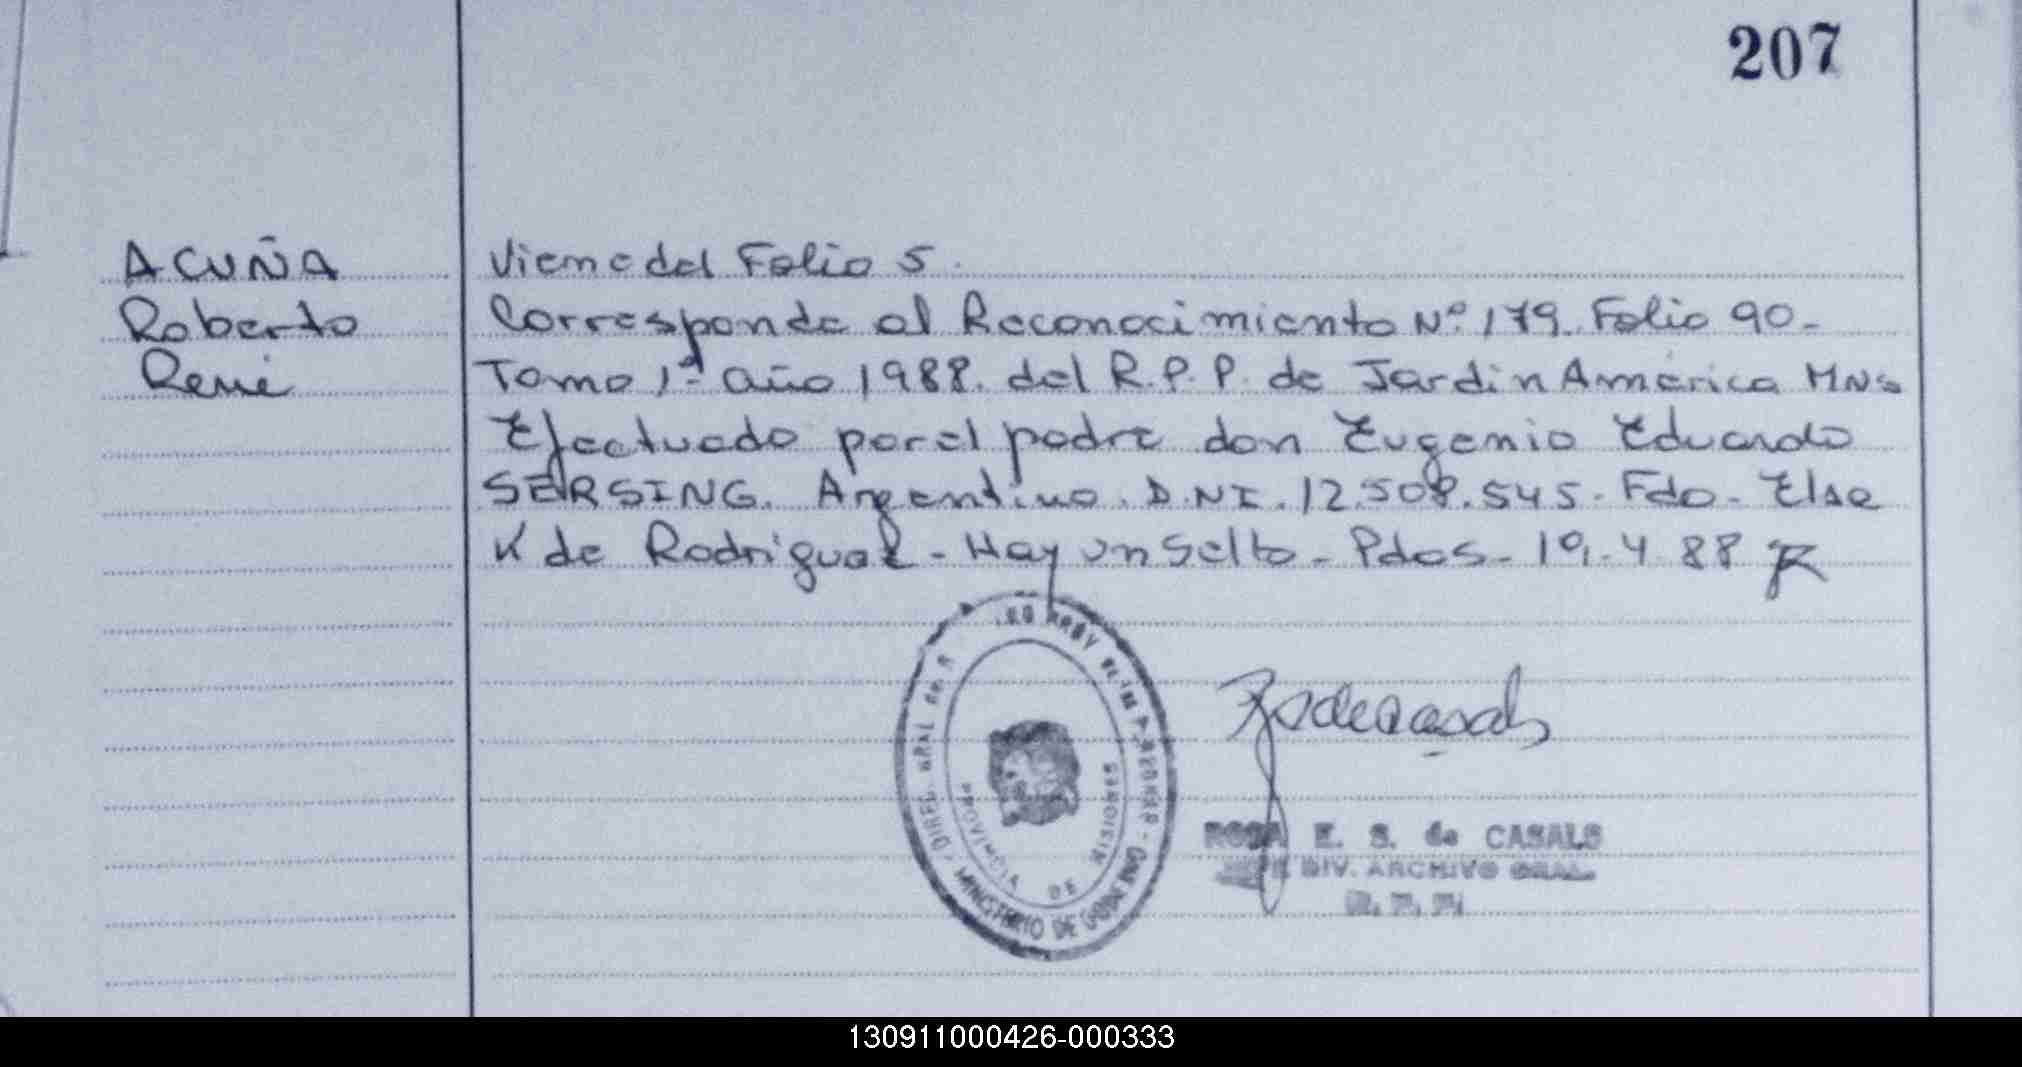 207
ACUÑA
Roberto
René
Viene del Folio 5.
Corresponde al Reconocimiento Nº 179. Folio 90-
Tomo 1º año 1988. del R.P.P. de Jardin América Mns
Efectuado por el padre don Eugenio Eduardo
SERSING. Argentino. D.NI. 12.508.545. Fdo- Elsa
K de Rodriguez - Hay un Sello - Pdas - 19-4-88
DIREC. GRAL de
PROVINCIA DE MISIONES
MINISTERIO DE GOBIERNO
ROSA E. S. de CASALS
JEFE DIV. ARCHIVO GRAL.
130911000426-000333